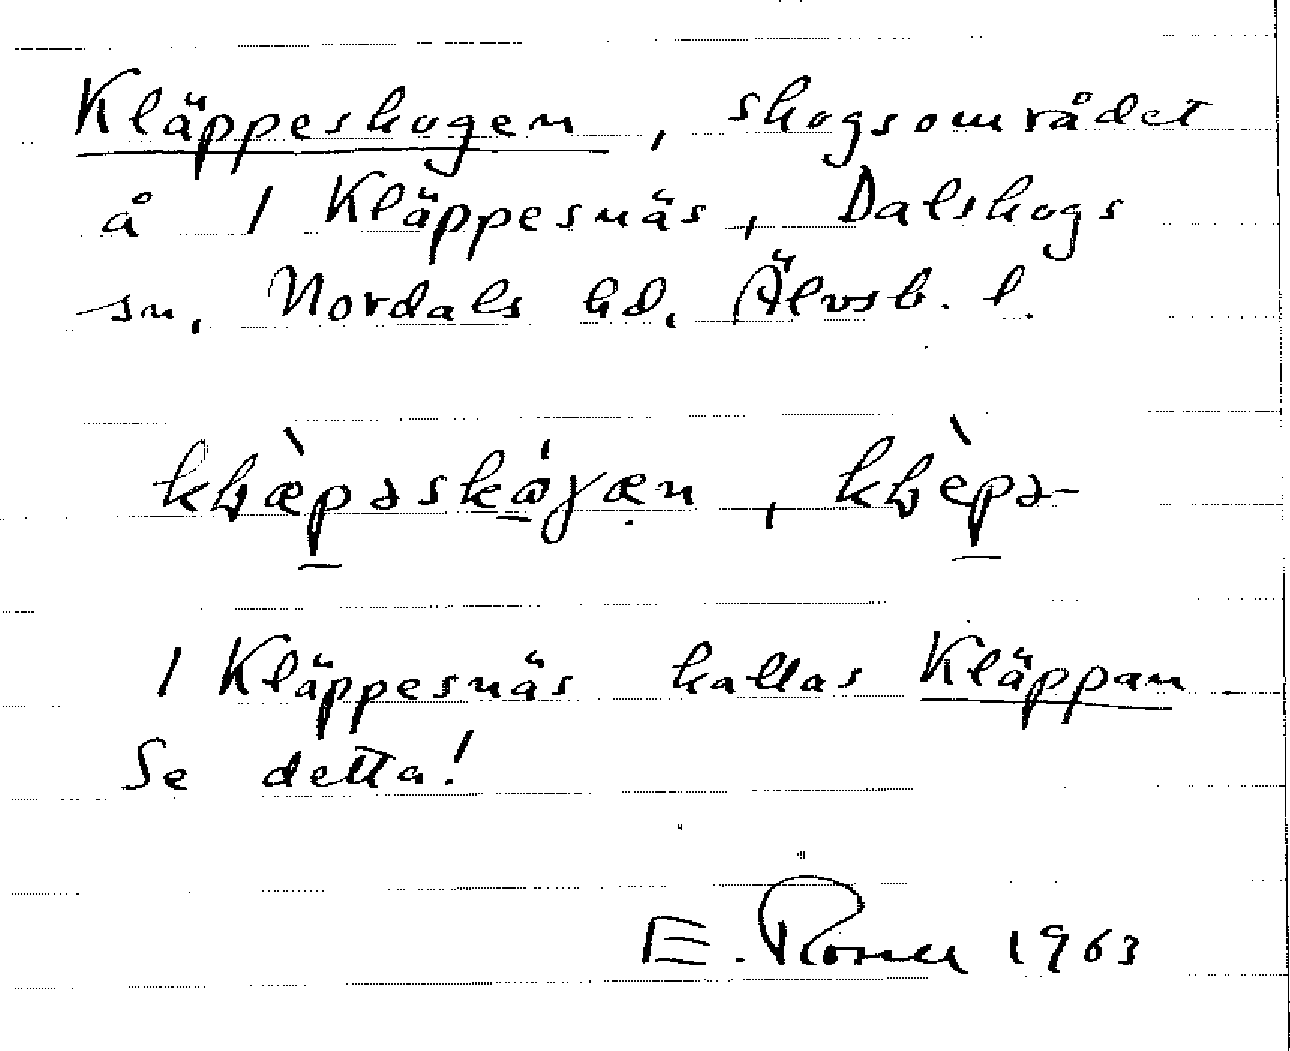 Kläppeskogen, skogsområdet
å 1 Kläppesnäs, Dalskogs
sn, Nordals hd, Älvsb. l.
1 Kläppesnäs kallas Kläppan
Se detta!
E. Rosell 1963